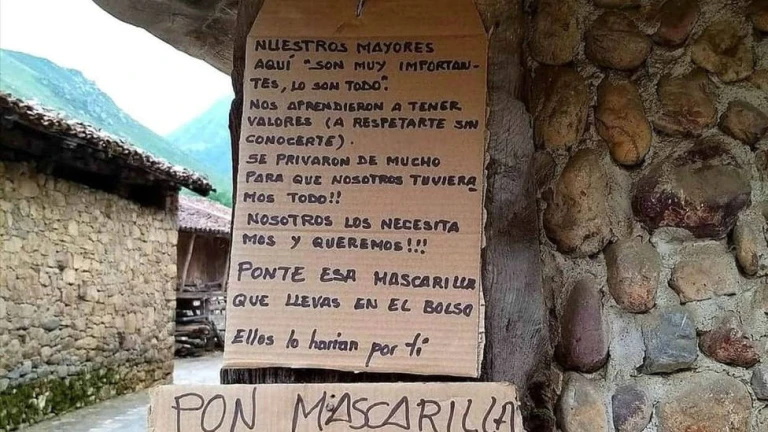 NUESTROS MAYORES
AQUÍ "SON MUY IMPORTAN-
TES, LO SON TODO".
NOS APRENDIERON A TENER
VALORES (A RESPETARTE SIN
CONOCERTE).
SE PRIVARON DE MUCHO
PARA QUE NOSOTROS TUVIERA
MOS TODO!!
NOSOTROS LOS NECESITA
MOS Y QUEREMOS!!!
PONTE ESA MASCARILLA
QUE LLEVAS EN EL BOLSO
Ellos lo harían por ti
PON MASCARILLA